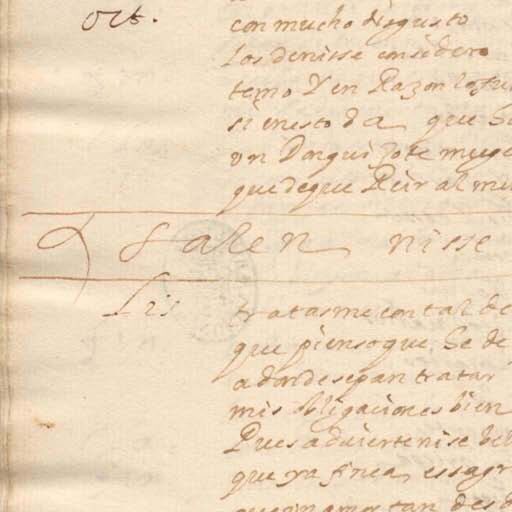 Oct.
con mucho disgusto
los denisse considero
temo Y en Razon lo fu
si en esto da que
un Don quijote
que de que Reir al mu
salen nisse
Lis tratasme con tal de
que pienso que se de
a donde sepan tratar
mis obligaciones bien
Pues advierte nise be
que ya finea, es sagr